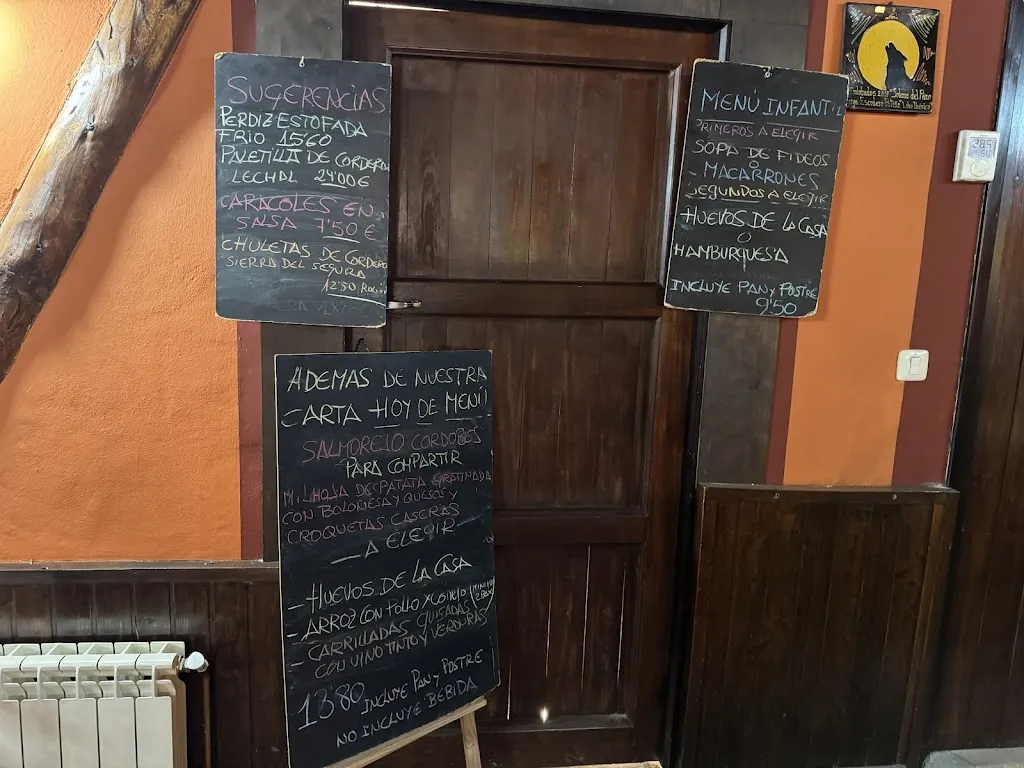 SUGERENCIAS
PERDIZ ESTOFADA
FRIO 15'60
PALETILLA DE CORDERO
LECHAL 24'00€
CARACOLES EN
SALSA 7'50 €
CHULETAS DE CORDERO
SIERRA DEL SEGURA
12'50 RACIÓN
ADEMAS DE NUESTRA
CARTA HOY DE MENÚ
SALMOREJO CORDOBÉS
PARA COMPARTIR
MILHOJA DE PATATA GRATINADA
CON BOLOÑESA Y QUESOS Y
CROQUETAS CASERAS
A ELEGIR
- HUEVOS DE LA CASA
- ARROZ CON POLLO Y CONEJO
- CARRILLADAS GUISADAS
CON VINO TINTO Y VERDURAS
13'80 INCLUYE PAN Y POSTRE
NO INCLUYE BEBIDA
MENÚ INFANTIL
PRIMEROS A ELEGIR
SOPA DE FIDEOS
O
- MACARRONES
SEGUNDOS A ELEGIR
HUEVOS DE LA CASA
O
HAMBURGUESA
INCLUYE PAN Y POSTRE
9'50